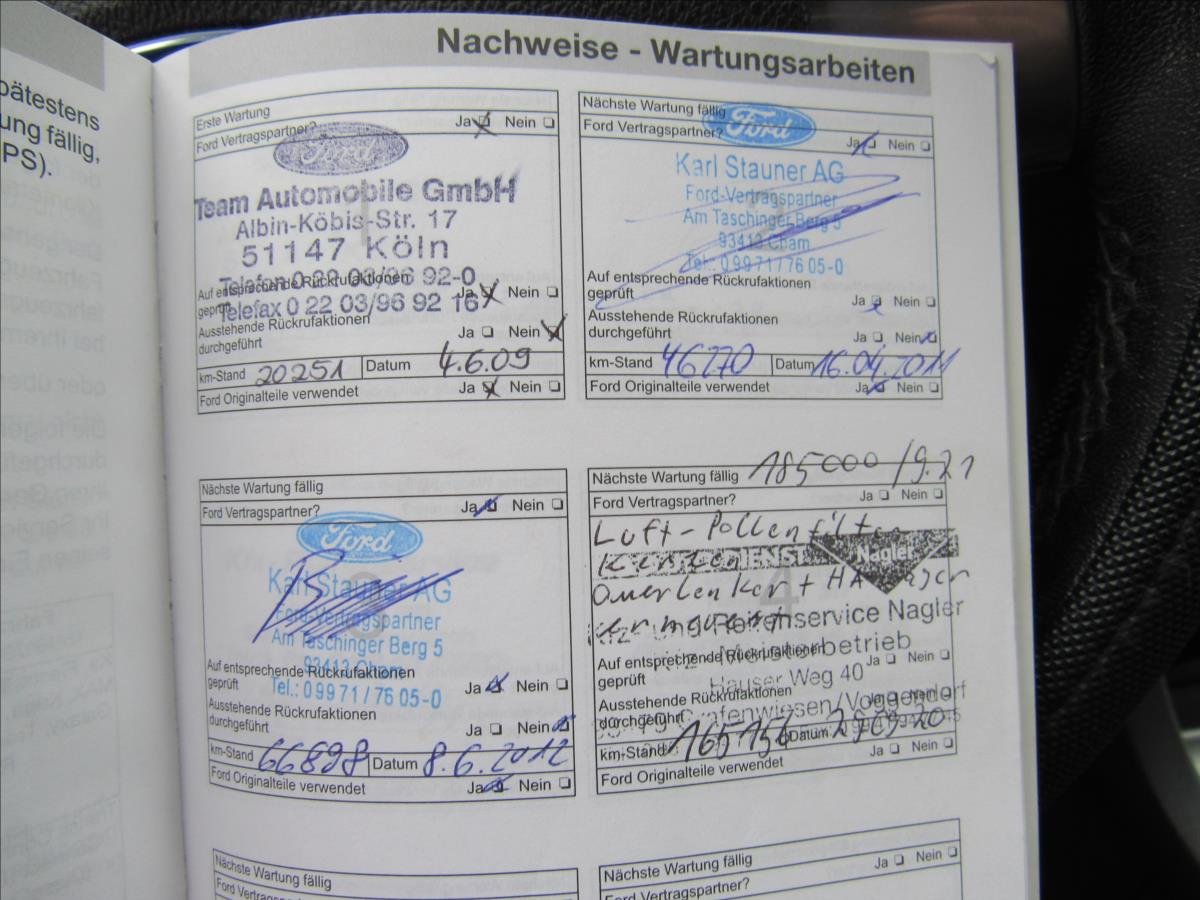 pätestens
ung fällig,
PS).
Nachweise - Wartungsarbeiten
Erste Wartung
Ford Vertragspartner? Ja Nein
Ford
Team Automobile GmbH
Albin-Köbis-Str. 17
51147 Köln
Telefon 0 22 03/96 92-0
Auf entsprechende Rückrufaktionen
geprüft Ja Nein
Telefax 0 22 03/96 92 16
Ausstehende Rückrufaktionen
durchgeführt Ja Nein
km-Stand 20251 Datum 4.6.09
Ford Originalteile verwendet Ja Nein
Nächste Wartung fällig
Ford Vertragspartner? Ja Nein
Ford
Karl Stauner AG
Ford-Vertragspartner
Am Taschinger Berg 5
93413 Cham
Tel.: 0 99 71 / 76 05-0
Auf entsprechende Rückrufaktionen
geprüft Ja Nein
Ausstehende Rückrufaktionen
durchgeführt Ja Nein
km-Stand 46270 Datum 16.04.2011
Ford Originalteile verwendet Ja Nein
Nächste Wartung fällig
Ford Vertragspartner? Ja Nein
Ford
Karl Stauner AG
Ford-Vertragspartner
Am Taschinger Berg 5
93413 Cham
Auf entsprechende Rückrufaktionen
geprüft Ja Nein
Tel.: 0 99 71 / 76 05-0
Ausstehende Rückrufaktionen
durchgeführt Ja Nein
km-Stand 66898 Datum 8.6.2012
Ford Originalteile verwendet Ja Nein
Nächste Wartung fällig 185000 / 9.21
Ford Vertragspartner? Ja Nein
Luft-Pollenfilter
Kerzen
Nagler
Querlenker + HA Lager
erneuert
Reifenservice Nagler
Kfz-Meisterbetrieb
Auf entsprechende Rückrufaktionen
geprüft Ja Nein
Hauser Weg 40
Ausstehende Rückrufaktionen
durchgeführt Ja Nein
Grafenwiesen/Voggendorf
km-Stand 165156 Datum
Ford Originalteile verwendet Ja Nein
Nächste Wartung fällig
Ford Vertragspartner?
Nächste Wartung fällig
Ford Vertragspartner? Ja Nein